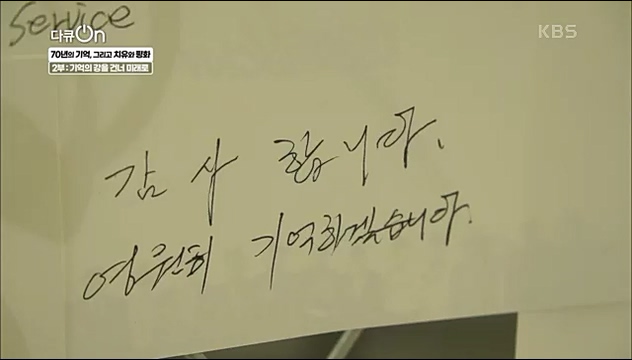 Service
다큐On
KBS
70년의 기억, 그리고 치유와 평화
2부 : 기억의 강을 건너 미래로
감사 합니다.
영원히 기억하겠습니다.